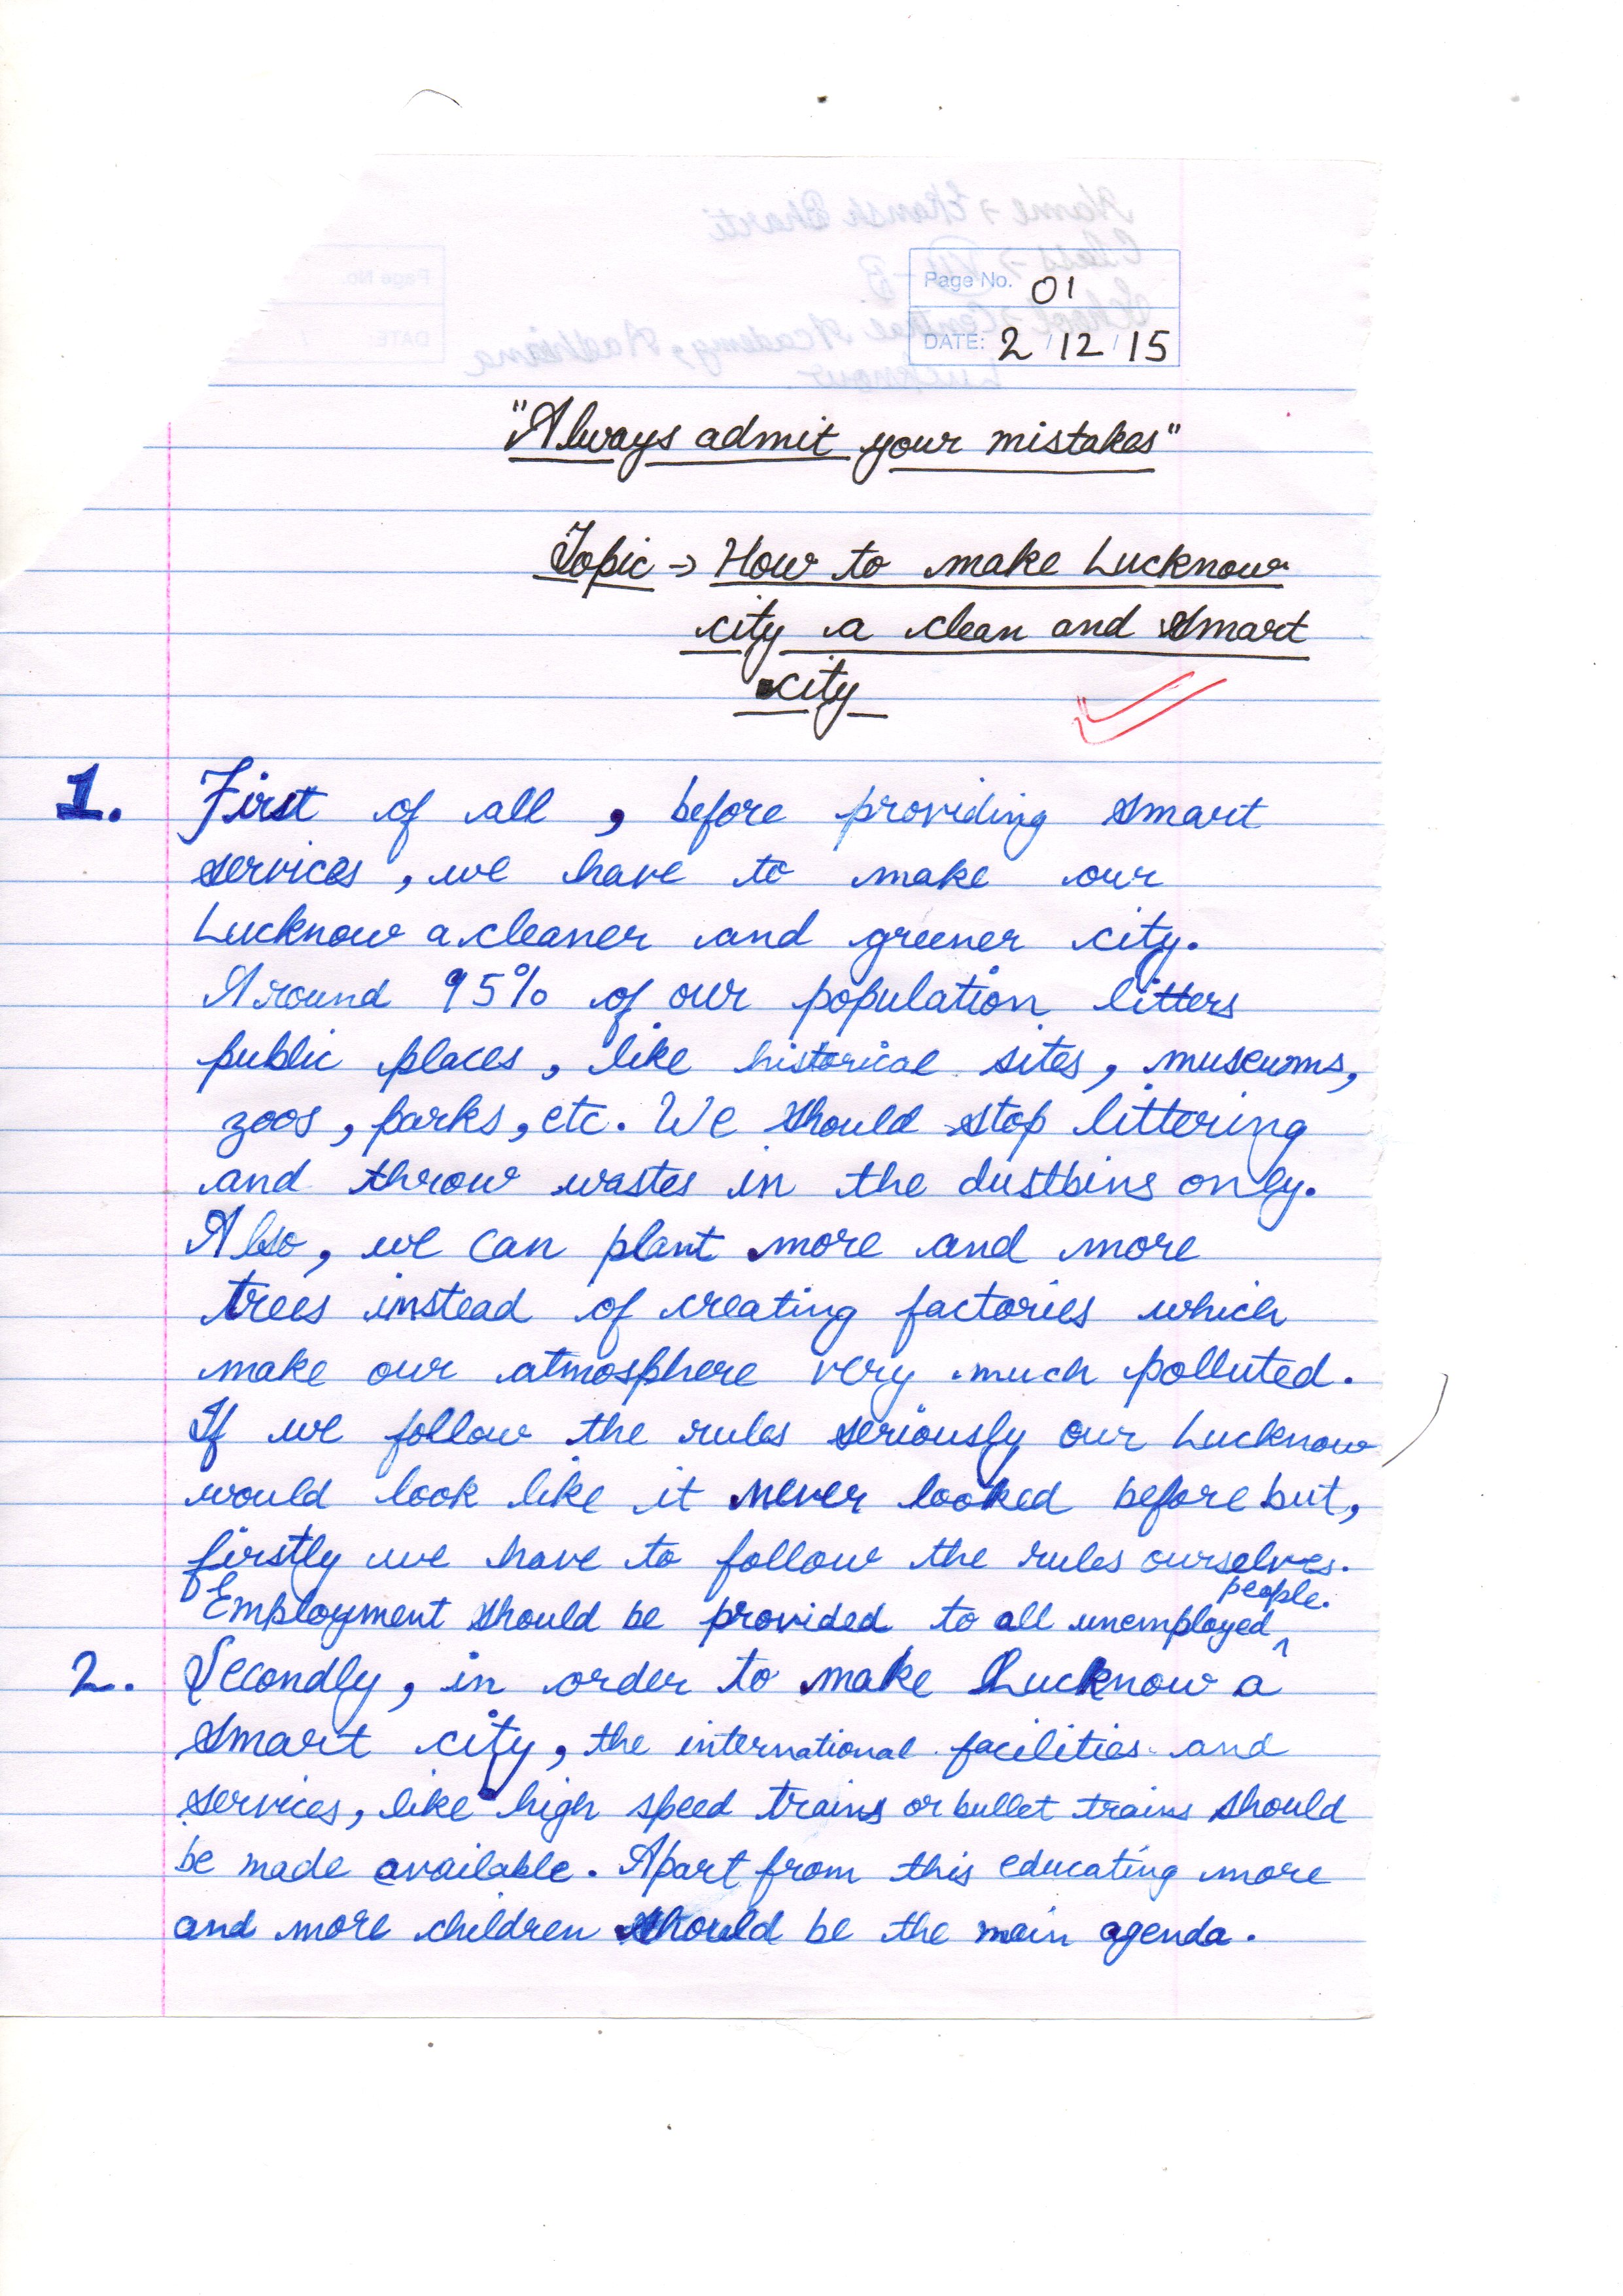 Page No. 01
DATE: 2/12/15
"Always admit your mistakes"
Topic → How to make Lucknow
city a clean and smart
city
1. First of all, before providing smart
services, we have to make our
Lucknow a cleaner and greener city.
Around 95% of our population litters
public places, like historical sites, museums,
zoos, parks, etc. We should stop littering
and throw wastes in the dustbins only.
Also, we can plant more and more
trees instead of creating factories which
make our atmosphere very much polluted.
If we follow the rules seriously our Lucknow
would look like it never looked before but,
firstly we have to follow the rules ourselves.
Employment should be provided to all unemployed people.
2. Secondly, in order to make Lucknow a
smart city, the international facilities and
services, like high speed trains or bullet trains should
be made available. Apart from this educating more
and more children should be the main agenda.